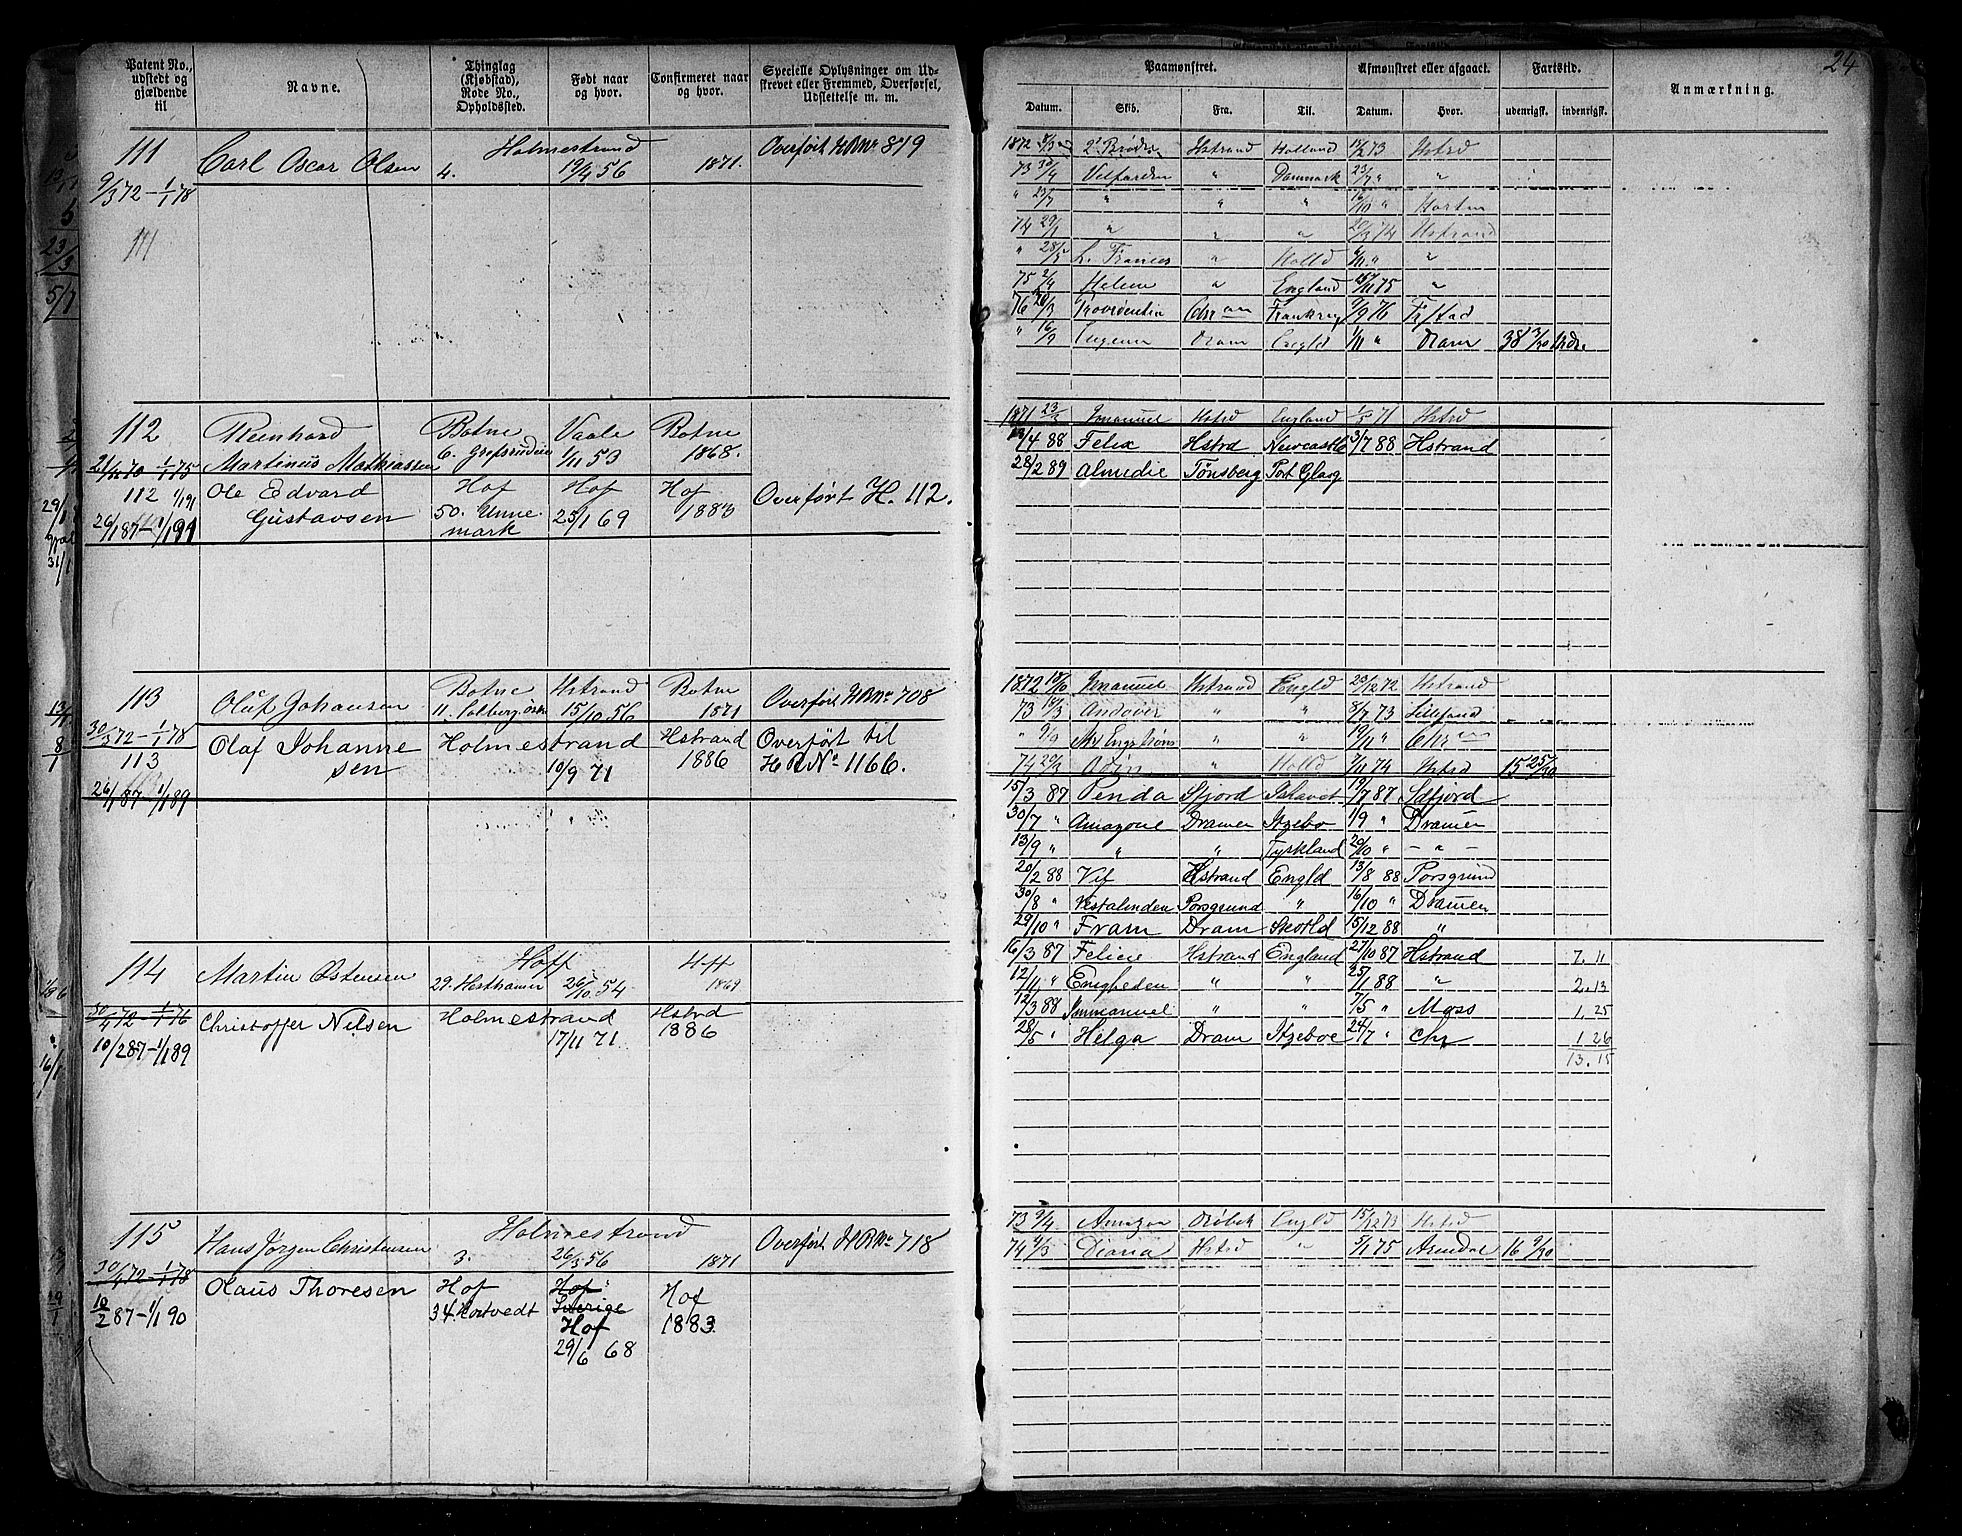 Patent No., udstedt og gjældende til
Navne.
Thinglag (Kjøbstad), Rode No., Opholdssted.
Født naar og hvor.
Confirmeret naar og hvor.
Specielle Oplysninger om Udskrevet eller Fremmed, Overførsel, Udslettelse m. m.
111
Holmestrand
Overført HRNr 879
Carl Oscar Olsen 4. 19/4 56 1871.
9/3 72 – 1/1 78
111
112 Reinhard Botne Vaale Botne
21/12 70 – 1/1 75 Martinus Mathiassen 6. 1/11 53 1868.
112 1/1 91 Ole Edvard Hof Hof Hof Overført H. 112.
26/1 87 – 1/1 91 Gustavsen 50. Unne- 25/1 69 1883
mark
113 Oluf Johansen Botne Hstrand Botne Overført HRNr 708
11. 15/10 56 1871
30/3 72 – 1/1 78 Olaf Johanne Holmestrand Hstrand Overført til
113 sen 10/9 71 1886 HRNo 1166.
26/1 87 – 1/1 89
114 Martin Østensen Hoff Hoff
29. 26/10 54 1869
30/4 72 – 1/1 76 Christoffer Nilsen Holmestrand Hstrd
10/2 87 – 1/1 89 17/11 71 1886
115 Hans Jørgen Christensen Holmestrand Overført HRNr 718
3. 26/3 56 1871
30/4 72 – 1/1 78 Olaus Thoresen Hof Hof Hof
10/2 87 – 1/1 90 34. Hortvedt Sverige 1883.
Hof
29/6 68
24
Paamønstret.
Afmønstret eller afgaaet.
Fartstid.
Anmærkning.
Datum. Skib. Fra. Til. Datum. Hvor. udenrigsk. indenrigsk.
1872 Hstrand Holland 73 Hstrd
73 30/4 " Danmark 23/7 " "
" 23/7 " " " 16/10 " Horten
74 29/1 " " " 74 Hstrand
" 28/5 L. Frances " Holld "
75 2/4 Helene " England 75 "
76 Providentia Frankrig 9/9 76 Fr/stad
" 16/9 Eugenie Dram Engld 1/11 " Dram 38 3/30 Mdr.
1871 23/3 Imanuel Hstrd England 71 Hstrd
/4 88 Felix Hstrd Newcastle 3/7 88 Hstrand
28/2 89 Almedie Tønsberg Port Glasg
1872 Imanuel Hstrand Engld 72 Hstrand
73 18/3 Andover " " 8/7 73
" 9/9 " " 19/11 "
74 29/3 Odin " Holld 74 Hstrd 15 25/30
15/3 87 Penda Sfjord Ishavet 19/7 87 Sdfjord
30/7 " Amazone Dramen Itzebo 1/9 " Dramen
13/9 " " " Tyskland 20/10 " – " –
20/2 88 Vif Hstrand Engld 13/8 88 Porsgrund
30/8 " Vestalinden Porsgrund " 16/10 " Dramen
29/10 " Fram Dram Skotld 15/12 88 "
16/3 87 Felicie Hstrand England 27/10 87 Hstrand 7. 11
12/11 " Enigheden " " 25/1 88 " 2. 13
12/3 88 Immanuel " " 7/5 " Moss 1. 25
28/5 " Helga Dram Itzeboe 24/7 " Chr 1 26
13. 15
73 9/4 Amazon Drøbak Engld 73 Hstrd
74 Diana Hstrd " 5/1 75 Arendal 16 9/30